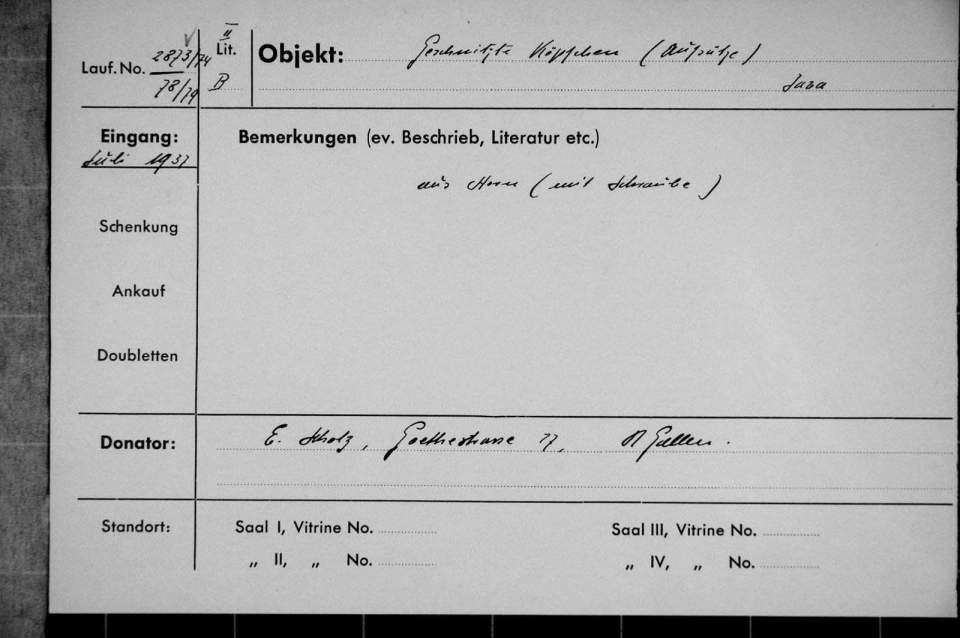 II
Lauf. No. 2873/74 Lit. Objekt: Geschnitzte Köpfchen (Aufsätze)
78/79 B Java
Eingang: Bemerkungen (ev. Beschrieb, Literatur etc.)
Juli 1937
aus Horn (mit Schraube)
Schenkung
Ankauf
Doubletten
Donator: E. Scholz, Goethestrasse 77, St Gallen.
Standort: Saal I, Vitrine No. Saal III, Vitrine No.
„ II, „ No. „ IV, „ No.